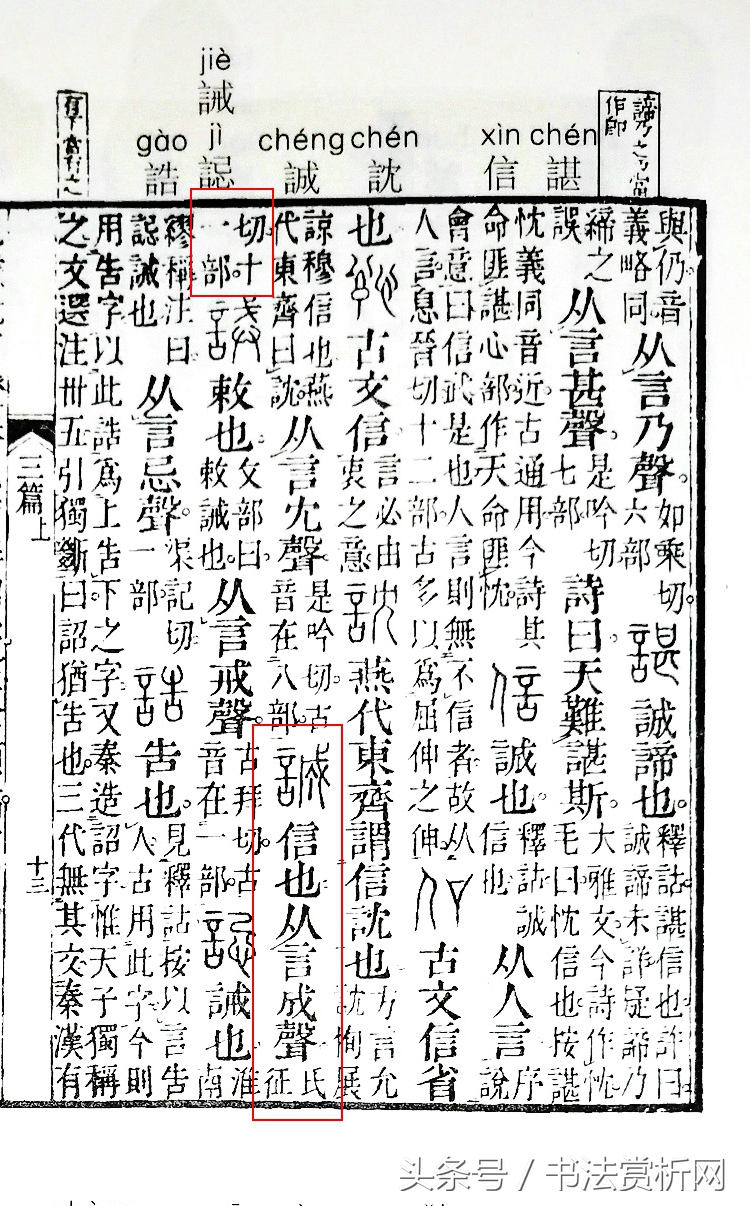 jiè
誡
chén chéng gào
諶 誠 誥
xìn chén jì
信 訦 誋
與仍音義略同从言乃聲。如乘切。六部誠諦也。釋詁諶信也許曰誠諦未詳疑諦乃
締之誤从言甚聲。是吟切七部詩曰天難諶斯大雅文今詩作忱毛曰忱信也按諶
忱義同音近古通用今詩其命匪諶心部作天命匪忱。誠也。釋詁誠信也从人言序說
會意曰信武是也人言則無不信者故从人言息晉切十二部古多以爲屈伸之伸古文信省
也古文信言必由衷之意燕代東齊謂信訦也方言允訦恂展
諒穆信也燕代東齊曰訦从言冘聲。是吟切古音在八部信也从言成聲氏征
切十一部。敕也。攴部曰敕誡也。从言戒聲。古拜切古音在一部誡也淮南
繆稱注曰誋誡也从言忌聲。渠記切一部告也。見釋詁按以言告人古用此字今則
用告字以此誥爲上告下之字又秦造詔字惟天子獨稱
之文選注卅五引獨斷曰詔猶告也三代無其文秦漢有
三篇上
十三
头条号／书法赏析网